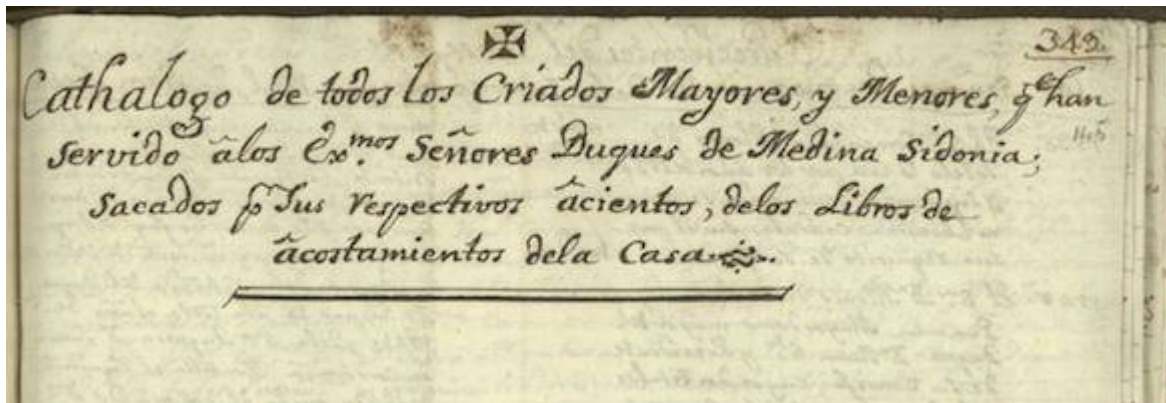 ✠
349.
Cathalogo de todos los Criados Mayores, y Menores, q̃ han
servido âlos Ex.mos Señores Duques de Medina Sidonia;
sacados p.r sus respectivos âcientos, delos Libros de
âcostamientos dela Casa